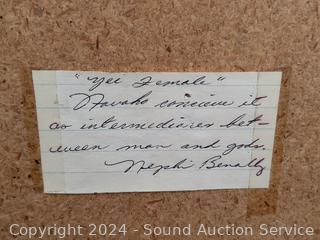 "Yei Female"
Navaho concieve it
as intermediaries bet-
ween man and gods.
Nephi Benally
Copyright 2024 - Sound Auction Service